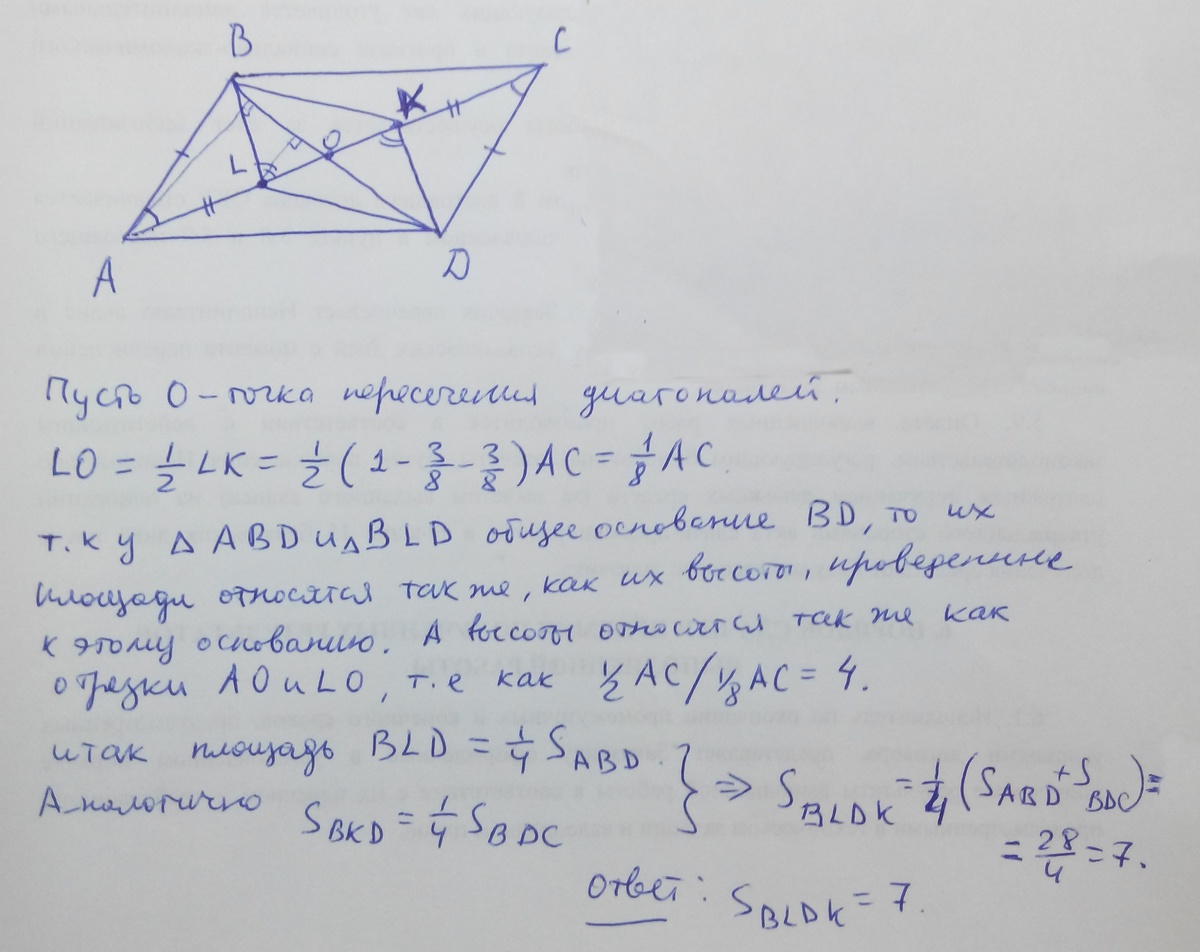 B
C
K
L
O
A
D
Пусть O – точка пересечения диагоналей.
LO = 1/2 LK = 1/2 (1 - 3/8 - 3/8) AC = 1/8 AC
т.к у △ ABD и △ BLD общее основание BD, то их
площади относятся так же, как их высоты, проведенные
к этому основанию. А высоты относятся так же как
отрезки AO и LO, т.е как 1/2 AC / 1/8 AC = 4.
итак площадь BLD = 1/4 S_ABD
Аналогично S_BKD = 1/4 S_BDC } ⇒ S_BLDK = 1/4 (S_ABD + S_BDC) =
= 28/4 = 7.
Ответ: S_BLDK = 7.